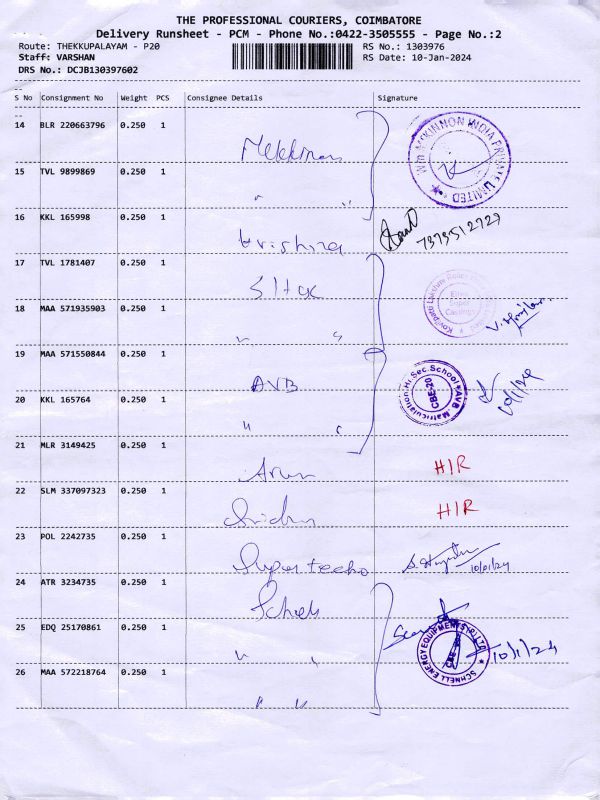 THE PROFESSIONAL COURIERS, COIMBATORE
Delivery Runsheet - PCM - Phone No.:0422-3505555 - Page No.:2
Route: THEKKUPALAYAM - P20 RS No.: 1303976
Staff: VARSHAN RS Date: 10-Jan-2024
DRS No.: DCJB130397602
S No Consignment No Weight PCS Consignee Details Signature
14 BLR 220663796 0.250 1
WM MCKINNON INDIA PRIVATE LIMITED
15 TVL 9899869 0.250 1 " "
16 KKL 165998 0.250 1 Krishna 7373512729
17 TVL 1781407 0.250 1
18 MAA 571935903 0.250 1 " "
19 MAA 571550844 0.250 1 AVB
AVB Matriculation Hr.Sec.School CBE-20
20 KKL 165764 0.250 1 " "
21 MLR 3149425 0.250 1 Arun H/R
22 SLM 337097323 0.250 1 H/R
23 POL 2242735 0.250 1 Super techo 10/01/24
24 ATR 3234735 0.250 1
25 EDQ 25170861 0.250 1 " " 10/1/24
SCHNELL ENERGY EQUIPMENTS (P) LTD
26 MAA 572218764 0.250 1 " "